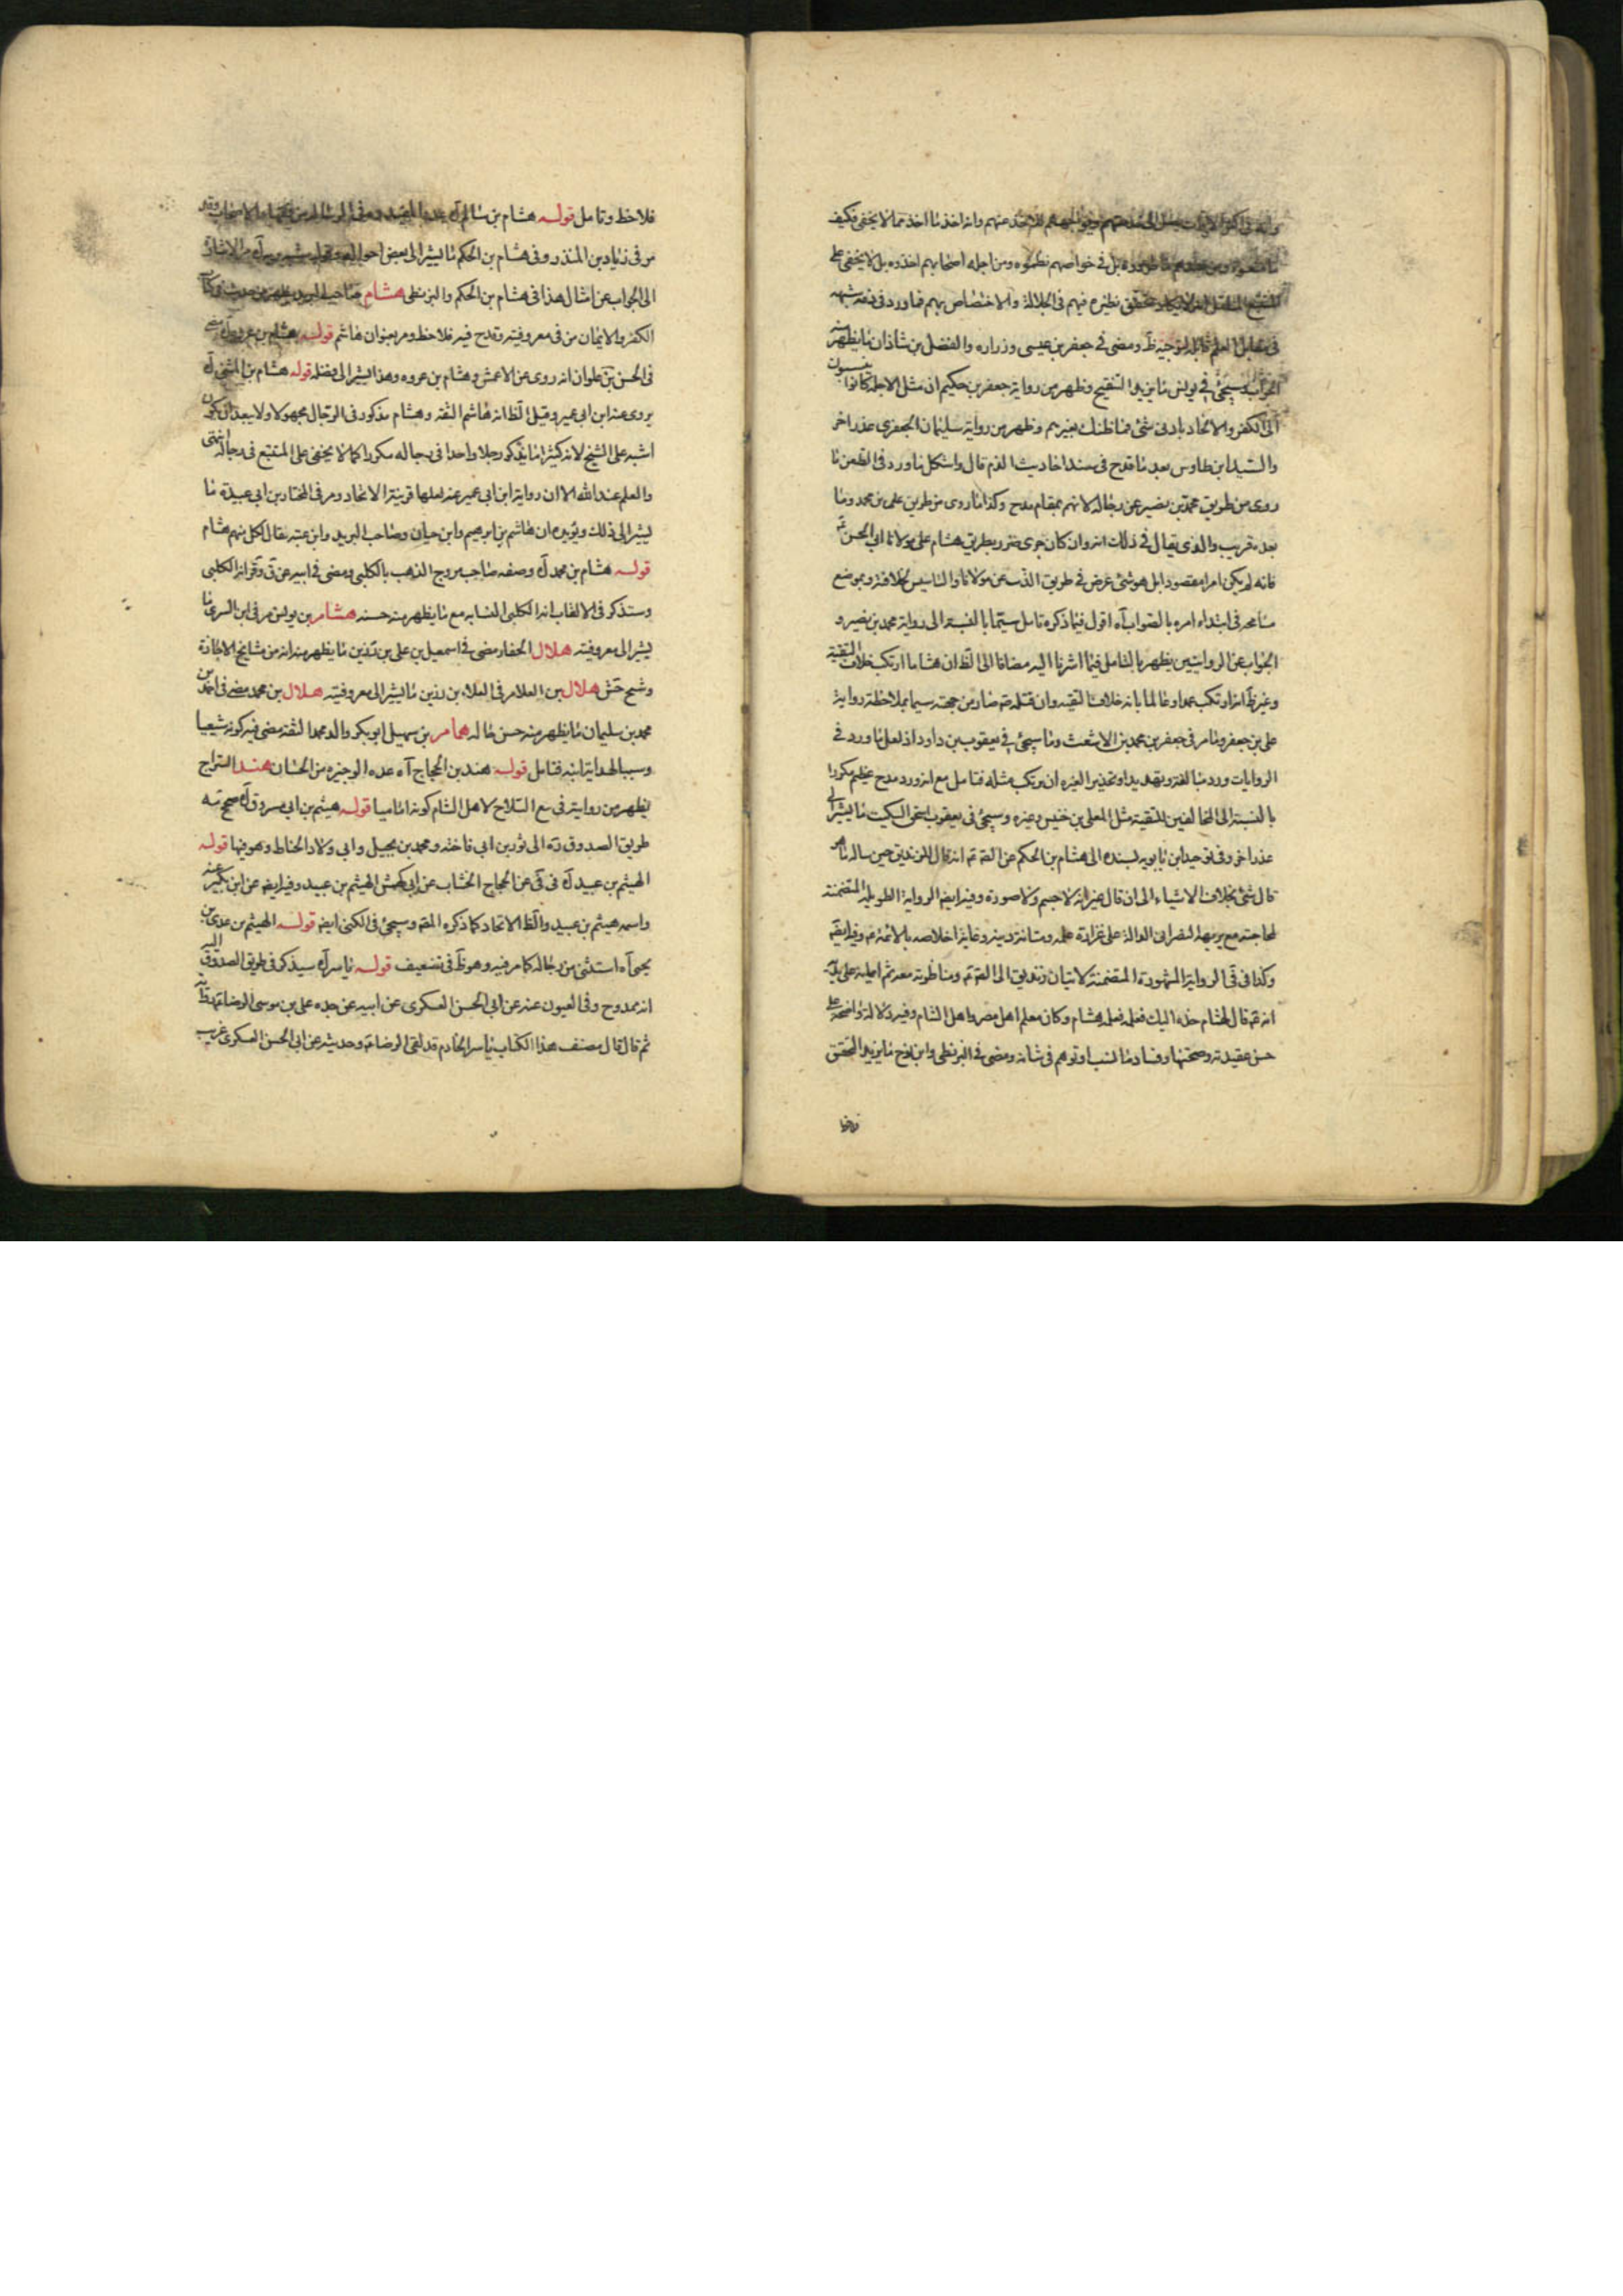 عنهم وانه اخذ ما اخذ مما لا يخفى فكيف
بل في خواصهم نظموه ومن اجله اصحابهم اخذوه بل لا يخفى على
نظيره فيهم في الجلالة والاختصاص بهم فما ورد في
ومضى في جعفر بن عيسى وزراره والفضل بن شاذان ما يظهر منه
الجواب وسيجئ في يونس ما يزيد التنقيح وظهر من رواية جعفر بن حكيم ان مثل الاجله كانوا ينسبون
الى الكفر والالحاد بادنى شئ فما ظنك بغيرهم وظهر من رواية سليمان الجعفري عذر اخر
والسيد ابن طاوس بعد ما قدح في سند احاديث الذم قال واشكل ما ورد في الطعن ما
روى من طريق محمد بن نصير عن رجاله لانهم بمقام مدح وكذا ما روى من طريق على بن محمد وما
بعده قريب والذي يقال في ذلك انه وان كان جرى ضرر بطريق هشام على مولانا ابى الحسن ع
فانه لم يكن امرا مقصودا بل هو شئ عرض في طريق الذب عن مولانا والتاسيس لخلافته وبموضع
مناصحه في ابتداء امره بالصواب آه اقول فيما ذكره تامل سيما بالنسبة الى رواية محمد بن نصير و
الجواب عن الروايتين يظهر بالتامل فيما اشرنا اليه مضافا الى الظ ان هشاما ارتكب خلاف التقية
وغير ظ انه ارتكب عمدا وعالما بانه خلاف التقيه وان قتله ع صار من جهته سيما بملاحظة رواية
على بن جعفر وما مر في جعفر بن محمد بن الاشعث وما سيجئ في يعقوب بن داود اذ لعل ما ورد في
الروايات ورد مبالغة وتهديدا وتحذيرا لغيره ان يرتكب مثله فتامل مع انه ورد مدح عظيم مكررا
بالنسبة الى المخالفين للتقية مثل المعلى بن خنيس وغيره وسيجئ في يعقوب اسحق السكيت ما يشير الى
عذر اخر وفي توحيد ابن بابويه بسنده الى هشام بن الحكم عن الصه ع انه قال للزنديق حين ساله ما هو
قال شئ بخلاف الاشياء الى ان قال غير انه لا جسم ولا صورة وفيه ايضا الرواية الطويلة المتضمنة
لمحاجته مع بريهة النصراني الدالة على غزارة علمه ومتانة دينه وغاية اخلاصه بالائمة ع وفيه ايضا
وكذا في في الرواية المشهورة المتضمنة لاتيان زنديق الى الصه ع ومناظرته معه ثم ايمانه على يده
انه ع قال لهشام خذه اليك فعلمه فعلمه هشام وكان معلم اهل مصر واهل الشام وفيه دلالة واضحة على
حسن عقيدته وصحتها وفساد ما نسب او توهم في شانه ومضى في البزنطى وابن نوح ما يزيد التحقق
فلاحظ وتامل قوله هشام بن سالم آه
مر في زياد بن المنذر وفي هشام بن الحكم ما يشير الى بعض احواله
الى الجواب عن امثال هذا في هشام بن الحكم والبزنطى هشام صاحب البريد
الكفر والايمان من في معروفيته وقدح فيه فلاحظ ومر بعنوان هاشم قوله هشام بن عروه آه
في الحسن بن علوان انه روى عن الاعمش وهشام بن عروه وهذا يشير الى فضله قوله هشام بن المثنى آه
يروى عنه ابن ابى عمير وقيل الظ انه هاشم الثقه وهشام مذكور في الرجال مجهولا ولا يبعد ان يكون
اشبه على الشيخ لانه كثيرا ما يذكر رجلا واحدا في رجاله مكررا كما لا يخفى على المتتبع في رجاله انتهى
والعلم عند الله الا ان رواية ابن ابى عمير عنه لعلها قرينة الاتحاد ومر في المختار بن ابى عبيدة ما
يشير الى ذلك ويؤيده ان هاشم بن ابرهيم وابن حيان وصاحب البريد وابن عتبه يقال لكل منهم هشام
قوله هشام بن محمد آه وصفه صاحب مروج الذهب بالكلبى ومضى في ابيه عن ق وقر انه الكلبى
وسنذكر في الالقاب انه الكلبى النسابه مع ما يظهر منه حسنه هشام بن يونس مر في ابن السرى ما
يشير الى معروفيته هلال الحفار مضى في اسمعيل بن على بن رزين ما يظهر منه انه من مشايخ الاجازة
وشيخ جش هلال بن العلا مر في العلاء بن رزين ما يشير الى معروفيته هلال بن محمد مضى في احمد بن
محمد بن سليمان ما يظهر منه حسن حاله همام بن سهيل ابو بكر والد محمد الثقه مضى فيه كونه شيعيا
وسبب الهداية ابنه فتامل قوله هند بن الحجاج آه عده الوجيزه من الحسان هند السراج
يظهر من روايته في بيع السلاح لاهل الشام كونه اماميا قوله هيثم بن ابى مسروق آه صحح مه
طريق الصدوق ره الى ثوير بن ابى فاخته ومحمد بن بجيل وابى ولاد الحناط وهو فيها قوله
الهيثم بن عبيد آه في في عن الحجاج الخشاب عن ابى كهمش الهيثم بن عبيد وفيه ايضا عن ابن بكير عنه
واسمه هيثم بن عبيد والظ الاتحاد كما ذكره المصه وسيجئ في الكنى ايضا قوله الهيثم بن عدى بن
يحيى آه استثنى من رجاله كما مر فيه وهو ظ في تضعيف قوله ياسر آه سيذكر في طريق الصدوق اليه
انه ممدوح وفي العيون عنه عن ابى الحسن العسكرى عن ابيه عن جده على بن موسى الرضا ع
ثم قال قال مصنف هذا الكتاب ياسر الخادم قد لقى الرضا ع وحديثه عن ابى الحسن العسكرى غريب